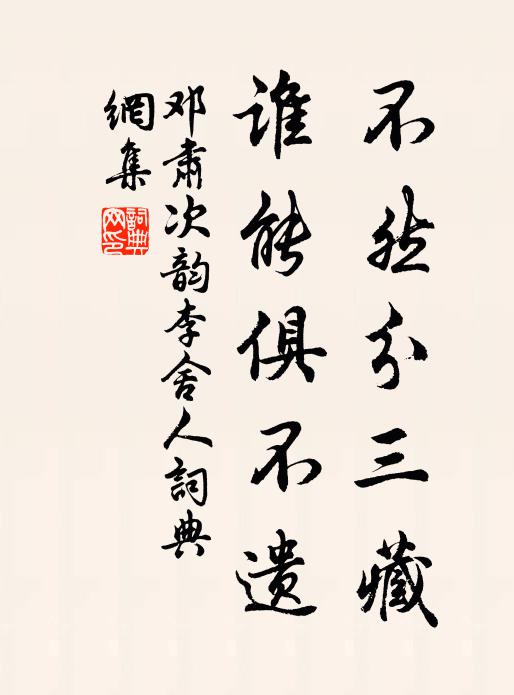 不然分三藏
谁能俱不遗
邓肃次韵李舍人詞典
網集
詞典
网印